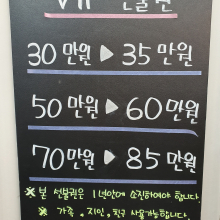 VIP 선불권
30만원 ▶ 35만원
50만원 ▶ 60만원
70만원 ▶ 85만원
※ 본 선불권은 1년안에 소진하여야 합니다.
※ 가족, 지인, 친구 사용가능합니다.